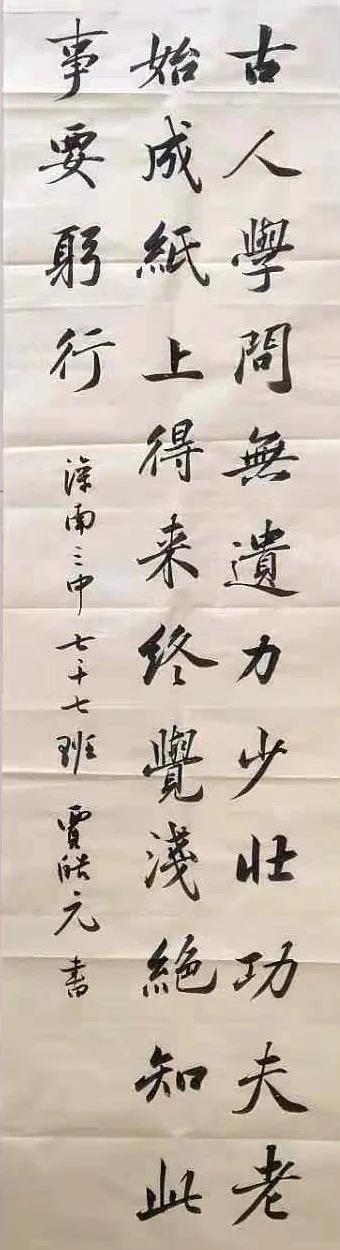 古人學問無遺力少壯功夫老
始成紙上得来終覺淺絕知此
事要躬行
滦南三中七十七班 賈皓元 書